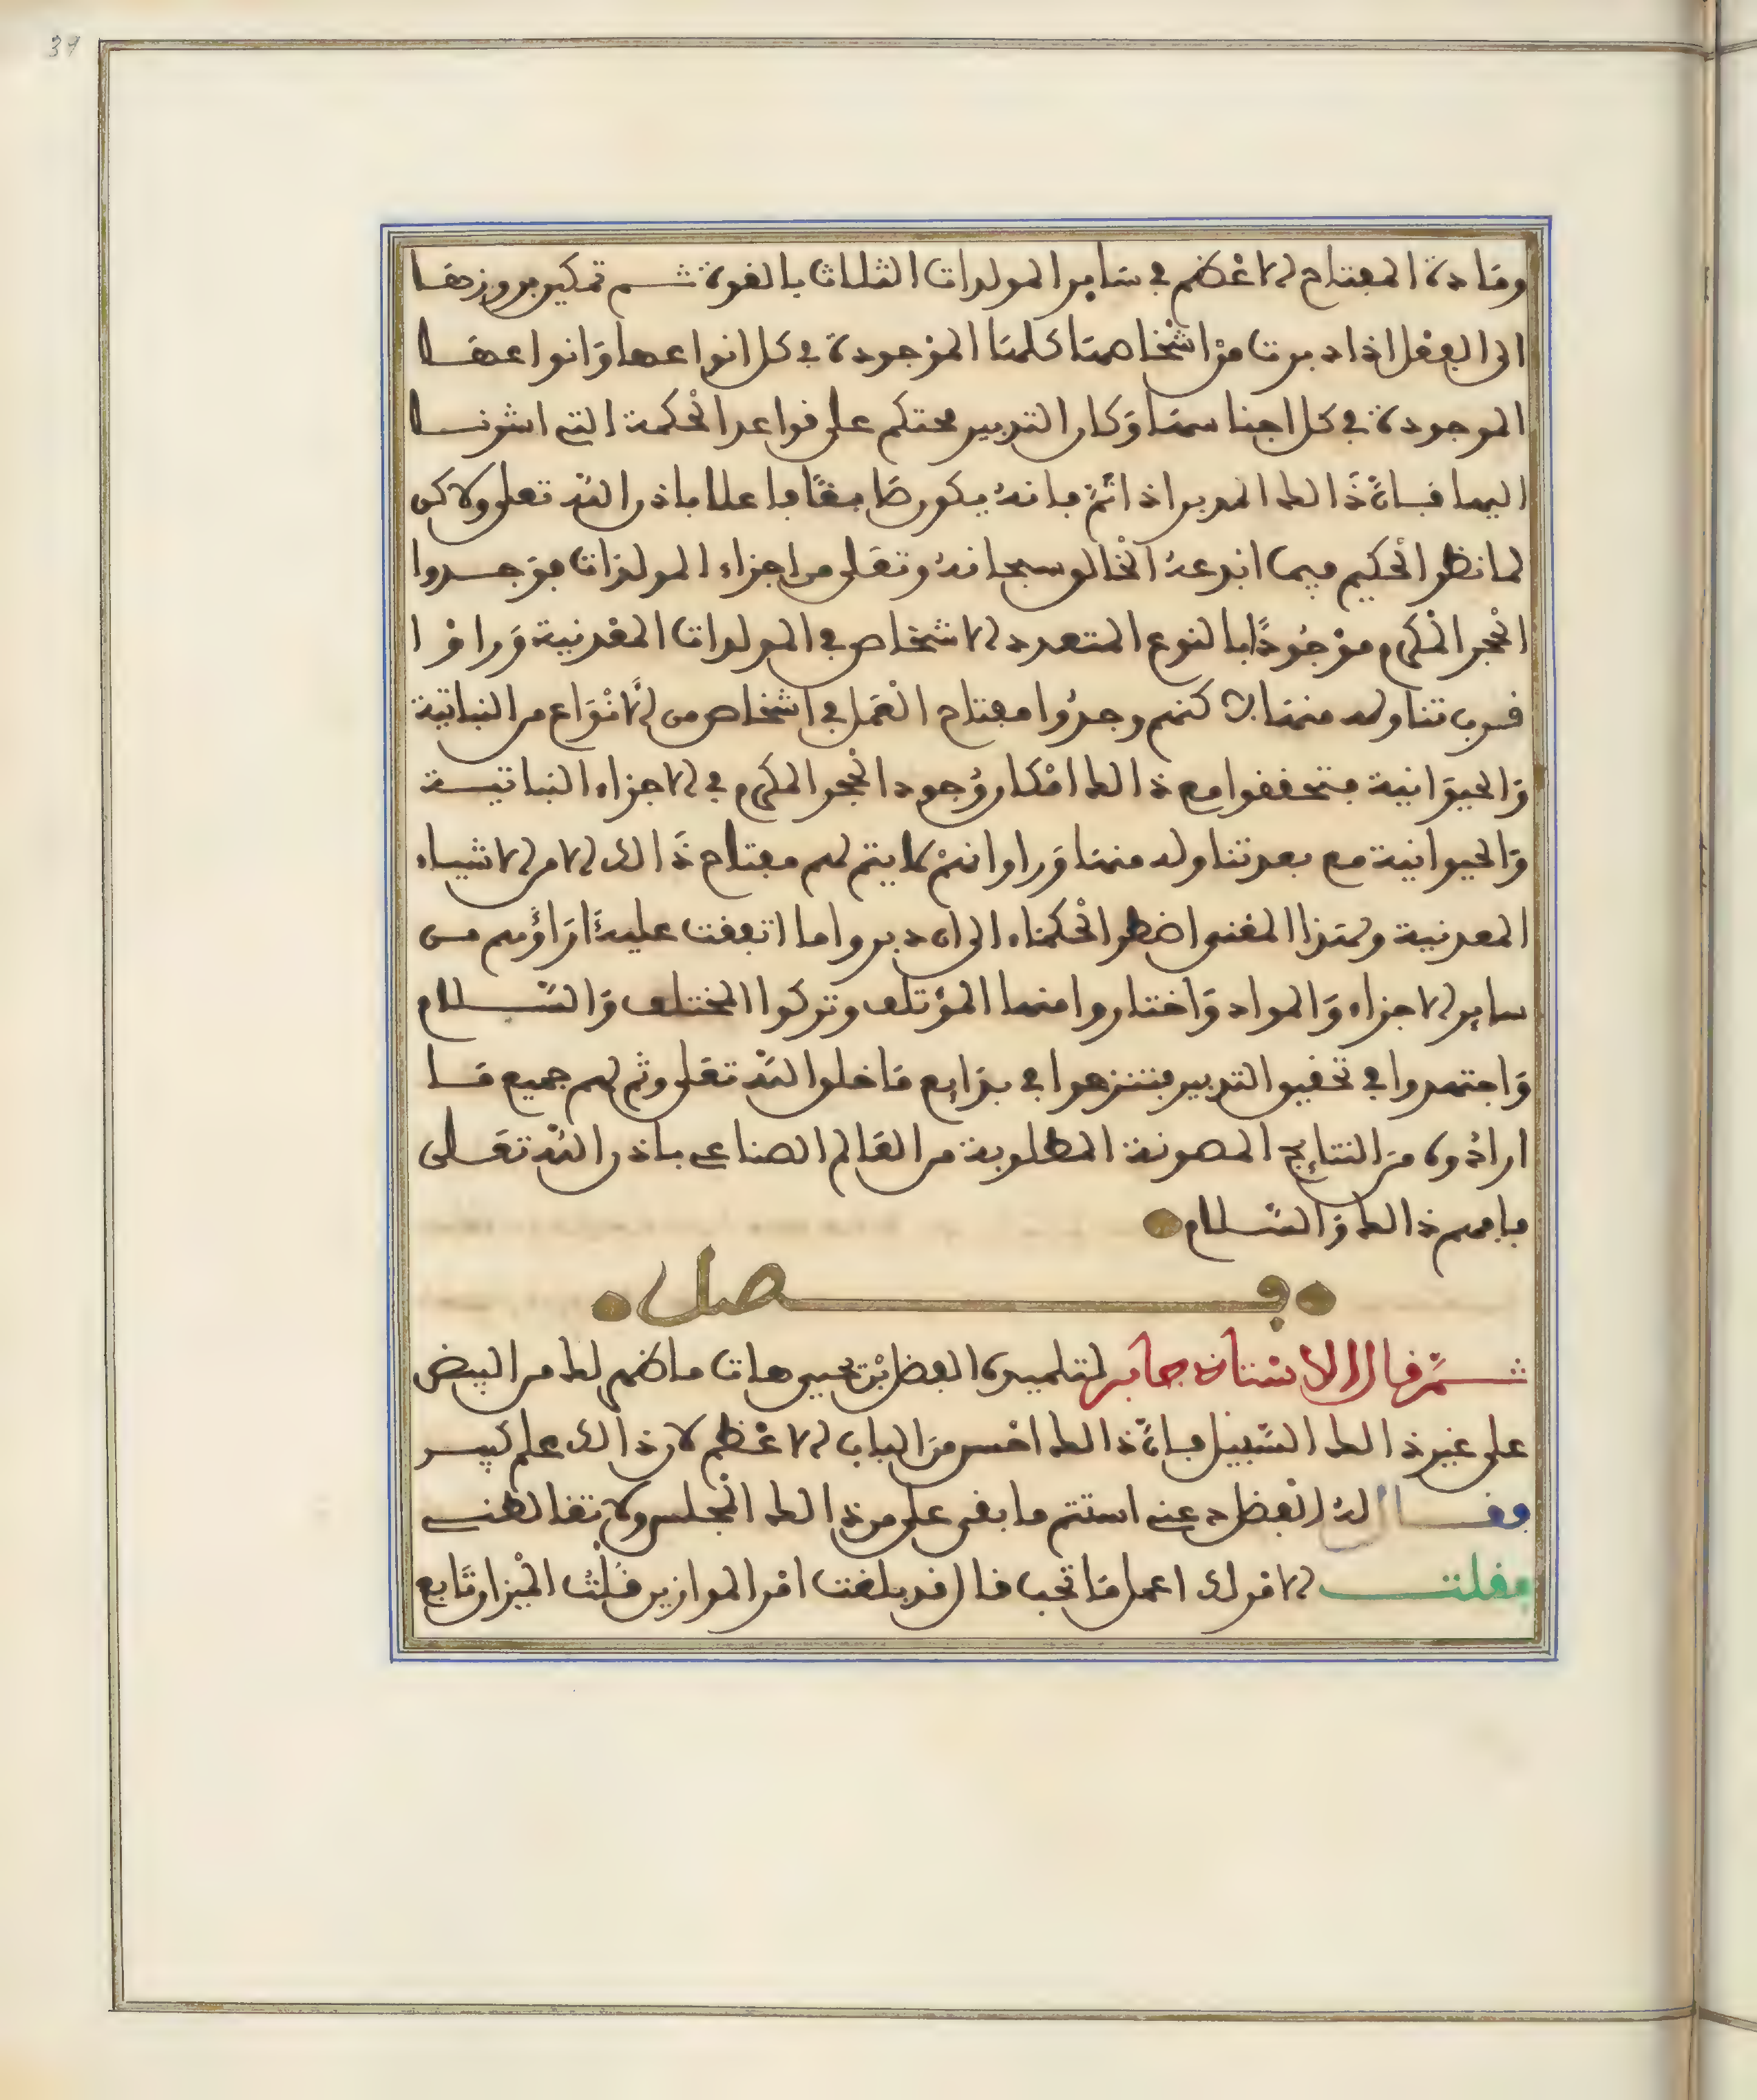 37
ومادة المفتاح الاعظم في ساير المولدات الثلاث بالقوة ثم تمكين بروزها
الى الفعل اذا دبرت من اشخاصها كلها الموجودة في كل انواعها وانواعها
الموجودة في كل اجناسها وكان التدبير محتكم على قواعد الحكمة التي اشرنا
اليها فبان ذالك المدبر اذا تم فانه يكون فاعلا باذن الله تعلى ولاكن
لما نظر الحكيم فيما ابدعه الخالق سبحانه وتعلى من اجزاء المولدات فوجدوا
الحجر المكرم موجودا بالنوع المتعدد الاشخاص في المولدات المعدنية وراوا
قرب تناوله منها لاكنهم وجدوا مفتاح العمل في اشخاص من الانواع من النباتية
والحيوانية فتحققوا مع ذالك امكان وجود الحجر المكرم في الاجزاء النباتية
والحيوانية مع بعد تناوله منها وراوا انه لا يتم لهم مفتاح ذالك الا من الاشياء
المعدنية ولهذا المعنى اضطر الحكماء الى ان دبروا ما اتفقت عليه اراؤهم من
ساير الاجزاء والمواد واختاروا منها المؤتلف وتركوا المختلف والسلام
واجتهدوا في تحقيق التدبير فتنزهوا في بدايع ما خلق الله تعلى وتم لهم جميع ما
ارادوه من النتايج المصونة المطلوبة من العالم الصناعي باذن الله تعلى
فافهم ذالك والسلام
فصل
ثم قال الاستاذ جابر لتلميذه الفضل بن يحيى هات ما ظهر لك من البيض
على غير ذالك السبيل فبان ذالك اخس من الباب الاعظم لان ذالك علم كبير
وقال له الفضل دعني استتم ما بقى على من ذالك المجلس ولا تغالطني
فقلت الامر لك اعمل ما تحب قال قد بلغت امر الموازين قلت الميزان تابع